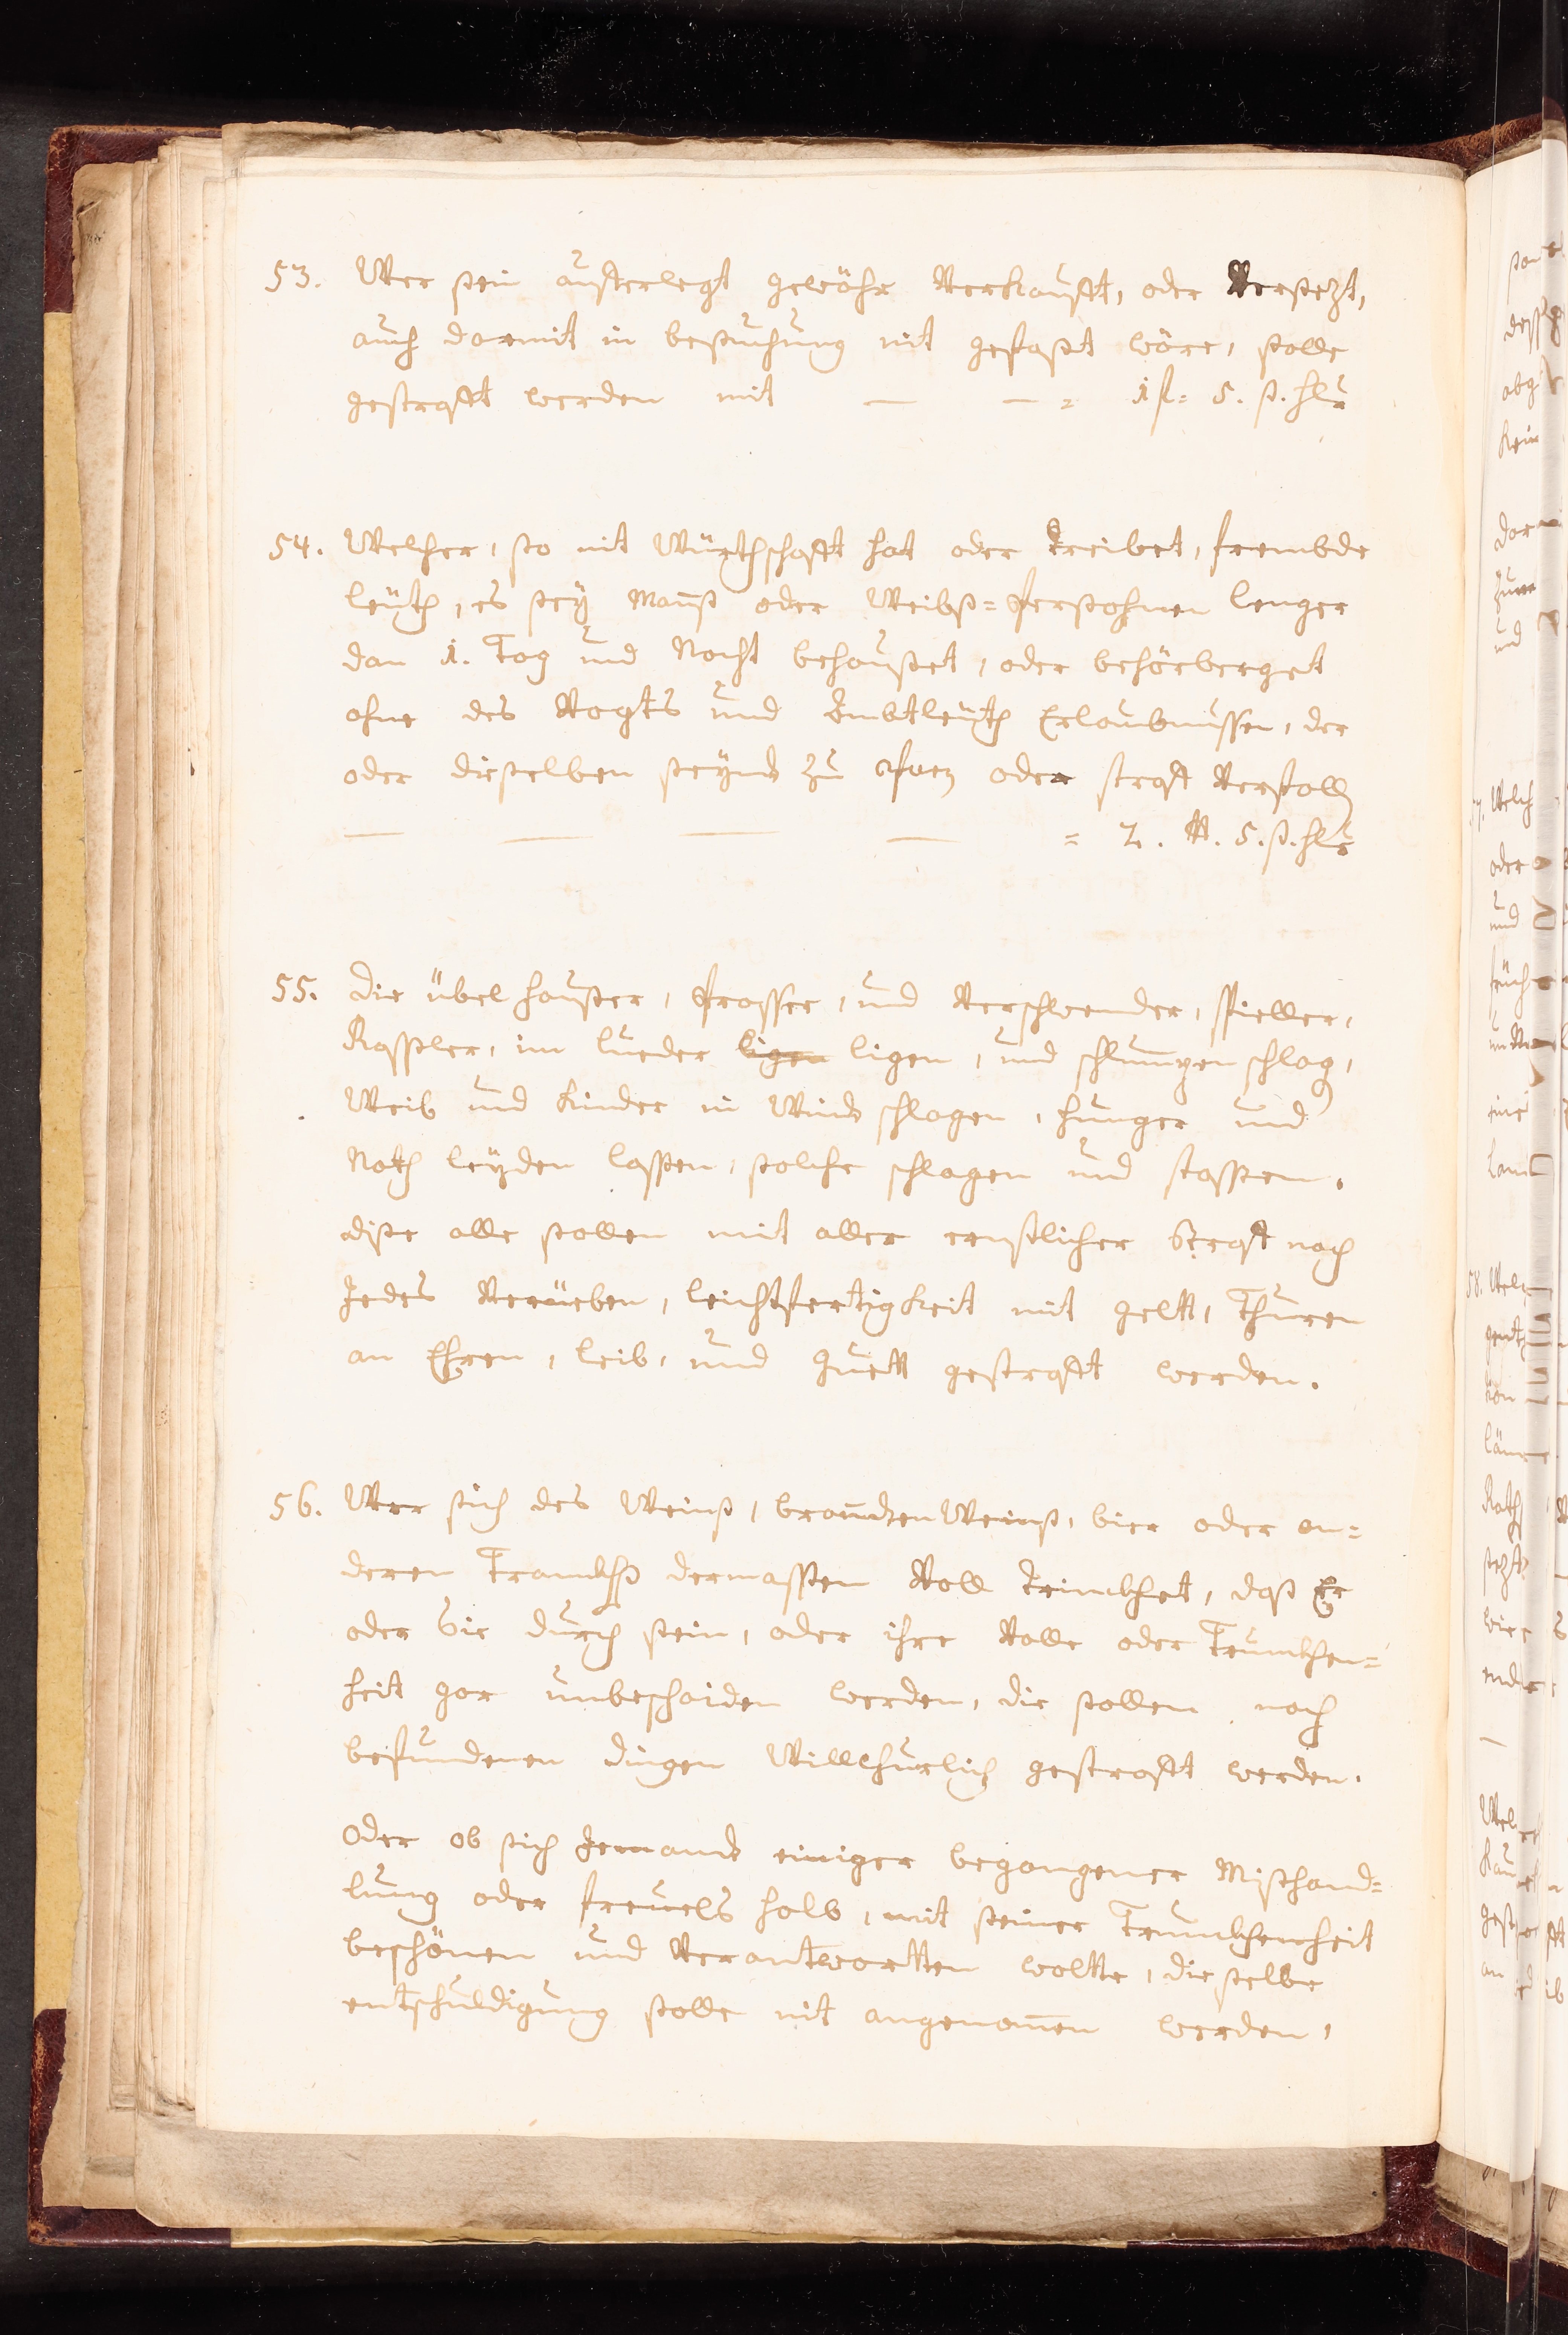 53. Wer sein aufferlegt gewöhr Verkaufft, oder Versezt,
auch darmit in besuchung nit gefasst wäre, solle
gestrafft werden mit — — = 1 fl= 5. ß. hlr
54. Welcher, so nit Würthschafft hat oder treibet, frembde
leüth, es seÿ Manß oder Weibß=Persohnen lenger
dan 1. Tag und Nacht behauset, oder behörberget
ohne des Vogts und Ambtleüth Erlaubnussen, der
oder dieselben seÿnd zu oder straff Verfalln
— — — — = 2. ℔. 5. ß. hlr
55. Die übel hauser, frasser, und Verschwender, Spieller,
Rassler, im lueder ligen ligen, und schlumpen schlag,
Weib und Kinder in Wind schlagen, hunger und
Noth leÿden lassen, solche schlagen und stossen.
dise alle sollen mit aller ernstlicher Straff nach
Jedes Verüeben, leichtfertigkeit mit gelt, Thuren
an Ehren, leib, und guett gestrafft werden.
56. Wer sich des Weinß, brandten Weinß, bier oder an=
deren Trankhß dermassen Voll trinckhet, daß Er
oder Sie durch sein, oder ihre Volle oder Trunckhen=
heit gar unbeschaiden werden, die sollen nach
befundenen dingen Willkhurlich gestrafft werden.
Oder ob sich Jemand einiger begangener Misshand=
lung oder freuels halb, mit seiner Trunckhenheit
beschönen und Verantwortten wolte, die selbe
entschuldigung solle nit angenommen werden,